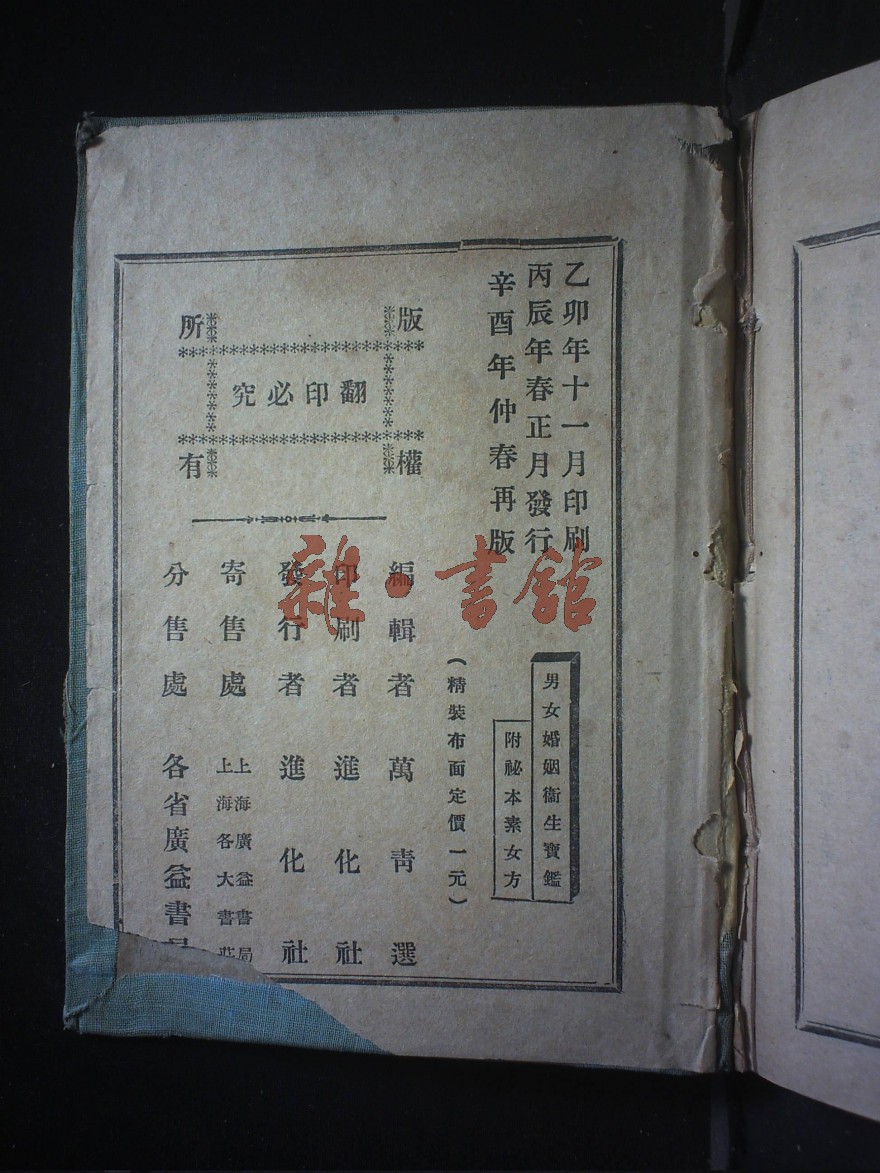 乙卯年十一月印刷
丙辰年春正月發行
辛酉年仲春再版
男女婚姻衞生寶鑑
附祕本素女方
（精裝布面定價一元）
版權所有
翻印必究
編輯者 萬青選
印刷者 進化社
發行者 進化社
寄售處 上海廣益書局
上海各大書莊
分售處 各省廣益書局
雜·書館